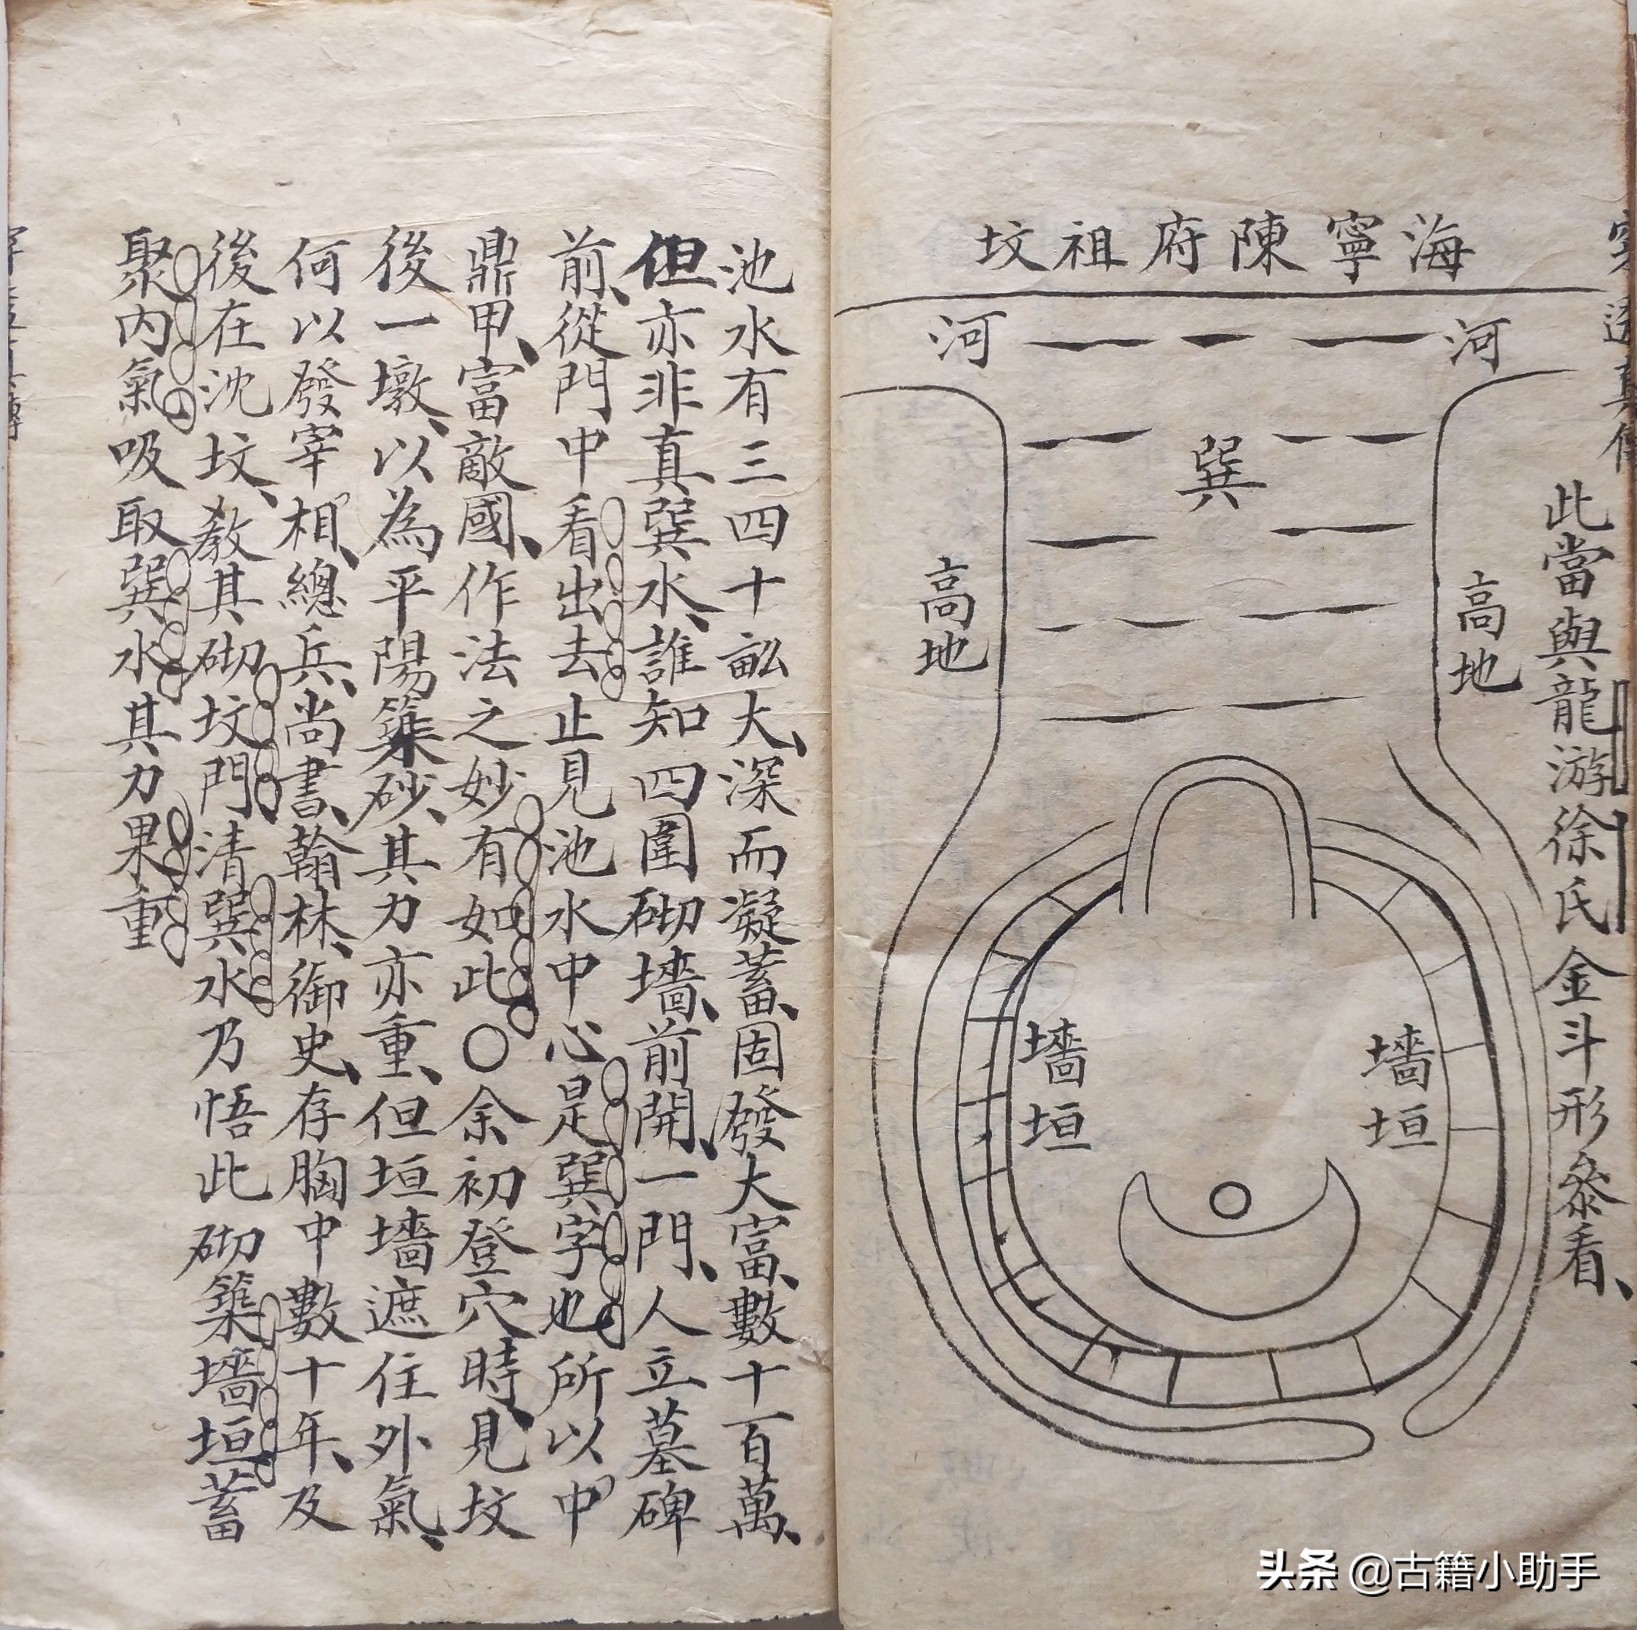 海寧陳府祖坟
河
河
巽
高地
高地
墻垣
墻垣
此當與龍游徐氏金斗形叅看、
池水有三四十畝大、深而凝蓄、固發大富、數十百萬、
但亦非真巽水、誰知四圍砌墻、前開一門、人立墓碑
前、從門中看出去止見池水中心是巽字也所以中
鼎甲、富敵國、作法之妙妙有如此○余初登穴時、見坟
後一墩、以為平陽築砂、其力亦重、但垣墻遮住外氣、
何以發宰相、總兵、尚書、翰林、御史、存胸中數十年、及
後在沈坟、教其砌坟門、清巽水乃悟此砌築墻垣蓄
聚内氣吸取巽水其力果重
头条 @古籍小助手